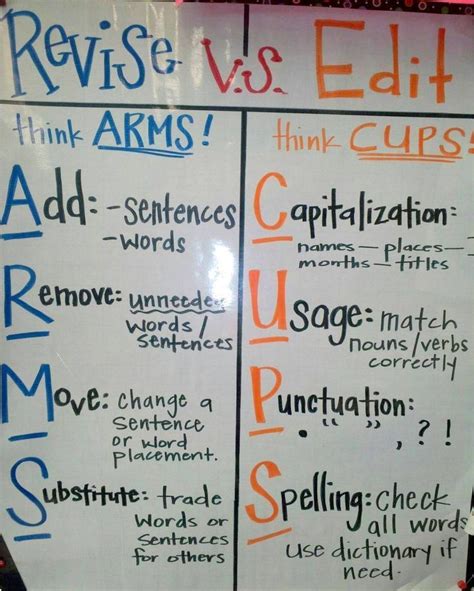 Revise v.s. Edit
think ARMS!
Add: -sentences
-words
Remove: unneeded
words/
sentences
Move: change a
sentence
or word
placement.
Substitute: trade
words or
sentences
for others
think CUPS!
Capitalization:
names — places —
months — titles
Usage: match
nouns/verbs
correctly
Punctuation:
. “ ” , ? !
Spelling: check
all words
use dictionary if
need.